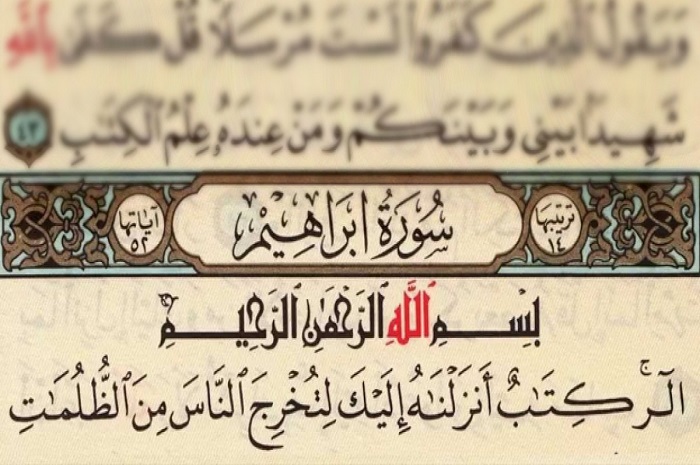 وَيَقُولُ ٱلَّذِينَ كَفَرُوا۟ لَسْتَ مُرْسَلًا قُلْ كَفَىٰ بِٱللَّهِ
شَهِيدًۢا بَيْنِى وَبَيْنَكُمْ وَمَنْ عِندَهُۥ عِلْمُ ٱلْكِتَٰبِ ٤٣
ترتيبها ١٤ سُورَةُ إِبْرَاهِيمَ آياتها ٥٢
بِسْمِ ٱللَّهِ ٱلرَّحْمَٰنِ ٱلرَّحِيمِ
الٓر ۚ كِتَٰبٌ أَنزَلْنَٰهُ إِلَيْكَ لِتُخْرِجَ ٱلنَّاسَ مِنَ ٱلظُّلُمَٰتِ